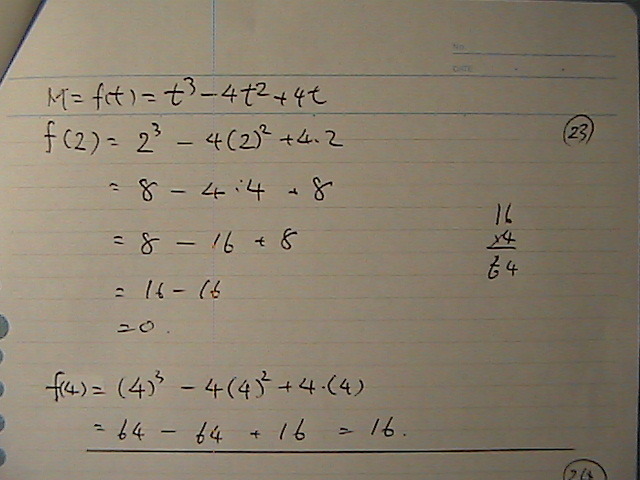 No.
DATE
M = f(t) = t³ - 4t² + 4t
f(2) = 2³ - 4(2)² + 4·2
(23)
= 8 - 4·4 + 8
= 8 - 16 + 8
= 16 - 16
= 0.
16
×4
64
f(4) = (4)³ - 4(4)² + 4·(4)
= 64 - 64 + 16 = 16.